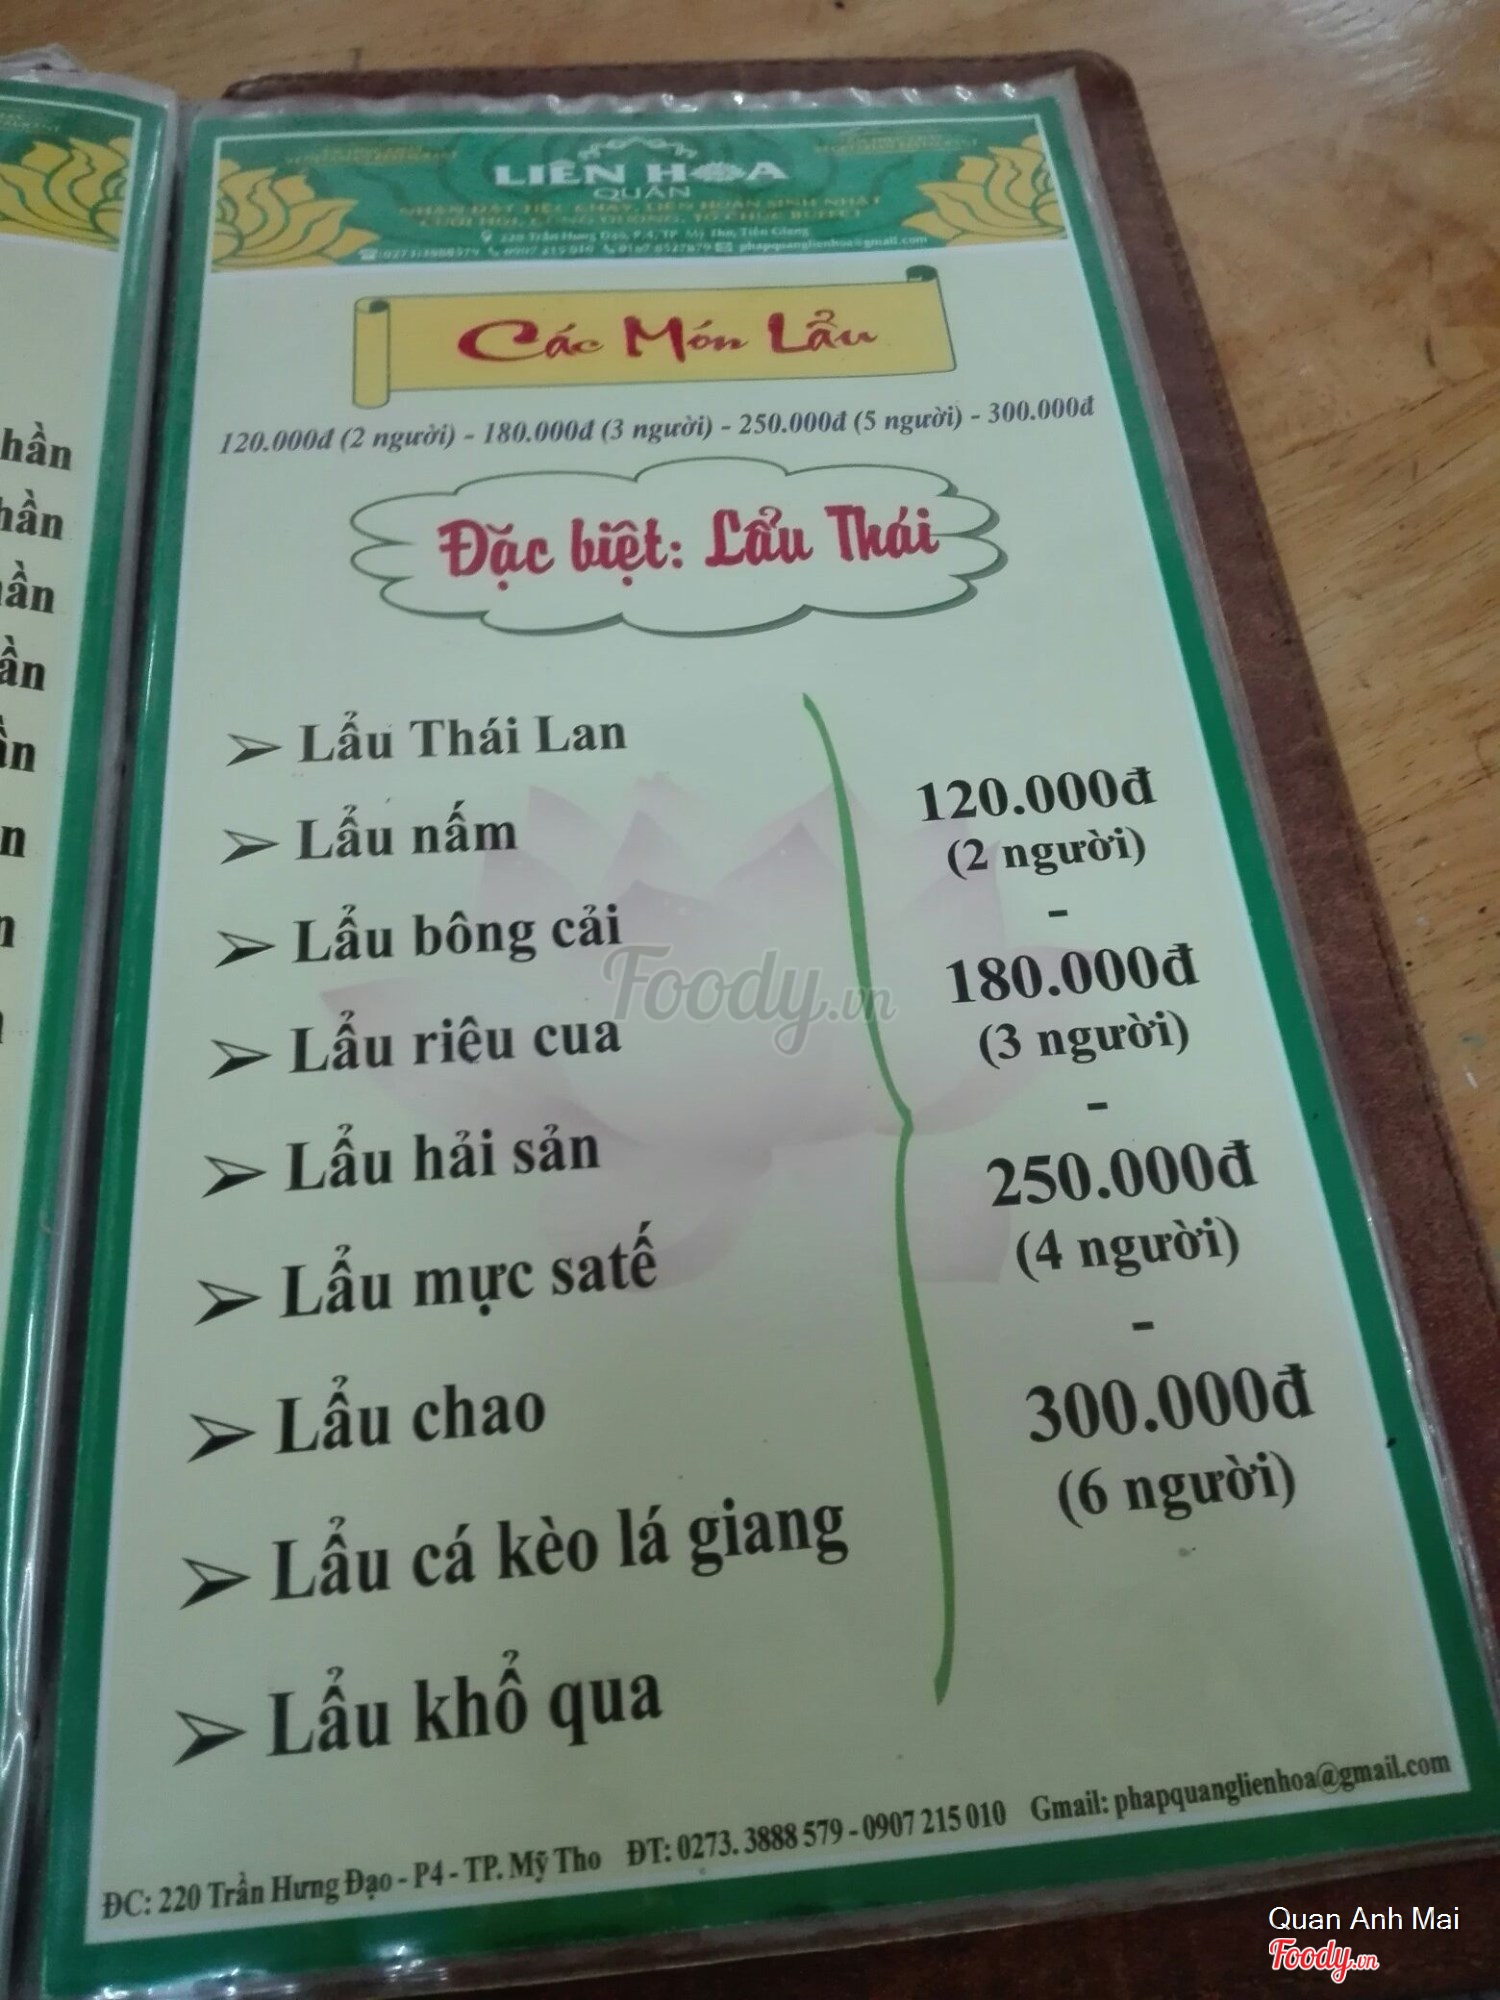 LIÊN HOA
QUÁN
NHẬN ĐẶT TIỆC CHAY, LIÊN HOAN SINH NHẬT
CƯỚI HỎI, CÚNG DƯỜNG, TỔ CHỨC BUFFET
220 Trần Hưng Đạo, P.4, TP. Mỹ Tho, Tiền Giang
phapquanglienhoa@gmail.com
Các Món Lẩu
120.000đ (2 người) - 180.000đ (3 người) - 250.000đ (5 người) - 300.000đ
Đặc biệt: Lẩu Thái
Lẩu Thái Lan
Lẩu nấm
Lẩu bông cải
Lẩu riêu cua
Lẩu hải sản
Lẩu mực satế
Lẩu chao
Lẩu cá kèo lá giang
Lẩu khổ qua
120.000đ
(2 người)
-
180.000đ
(3 người)
-
250.000đ
(4 người)
-
300.000đ
(6 người)
ĐC: 220 Trần Hưng Đạo - P4 - TP. Mỹ Tho ĐT: 0273. 3888 579 - 0907 215 010 Gmail: phapquanglienhoa@gmail.com
Foody.vn
Quan Anh Mai
Foody.vn